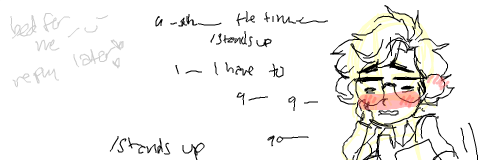 bed for
me
reply later
the time
/stands up
I— I have to
g— g—
go—
/stands up